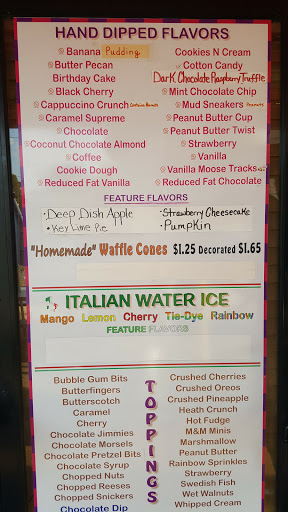 HAND DIPPED FLAVORS
Banana Pudding
Butter Pecan
Birthday Cake
Black Cherry
Cappuccino Crunch Contains Peanuts
Caramel Supreme
Chocolate
Coconut Chocolate Almond
Coffee
Cookie Dough
Reduced Fat Vanilla
Cookies N Cream
Cotton Candy
Dark Chocolate Raspberry Truffle
Mint Chocolate Chip
Mud Sneakers Peanuts
Peanut Butter Cup
Peanut Butter Twist
Strawberry
Vanilla
Vanilla Moose Tracks
Reduced Fat Chocolate
FEATURE FLAVORS
• Deep Dish Apple
• Key Lime Pie
• Strawberry Cheesecake
• Pumpkin
"Homemade" Waffle Cones $1.25 Decorated $1.65
ITALIAN WATER ICE
Mango Lemon Cherry Tie-Dye Rainbow
FEATURE FLAVORS
TOPPINGS
Bubble Gum Bits
Butterfingers
Butterscotch
Caramel
Cherry
Chocolate Jimmies
Chocolate Morsels
Chocolate Pretzel Bits
Chocolate Syrup
Chopped Nuts
Chopped Reeses
Chopped Snickers
Chocolate Dip
Crushed Cherries
Crushed Oreos
Crushed Pineapple
Heath Crunch
Hot Fudge
M&M Minis
Marshmallow
Peanut Butter
Rainbow Sprinkles
Strawberry
Swedish Fish
Wet Walnuts
Whipped Cream